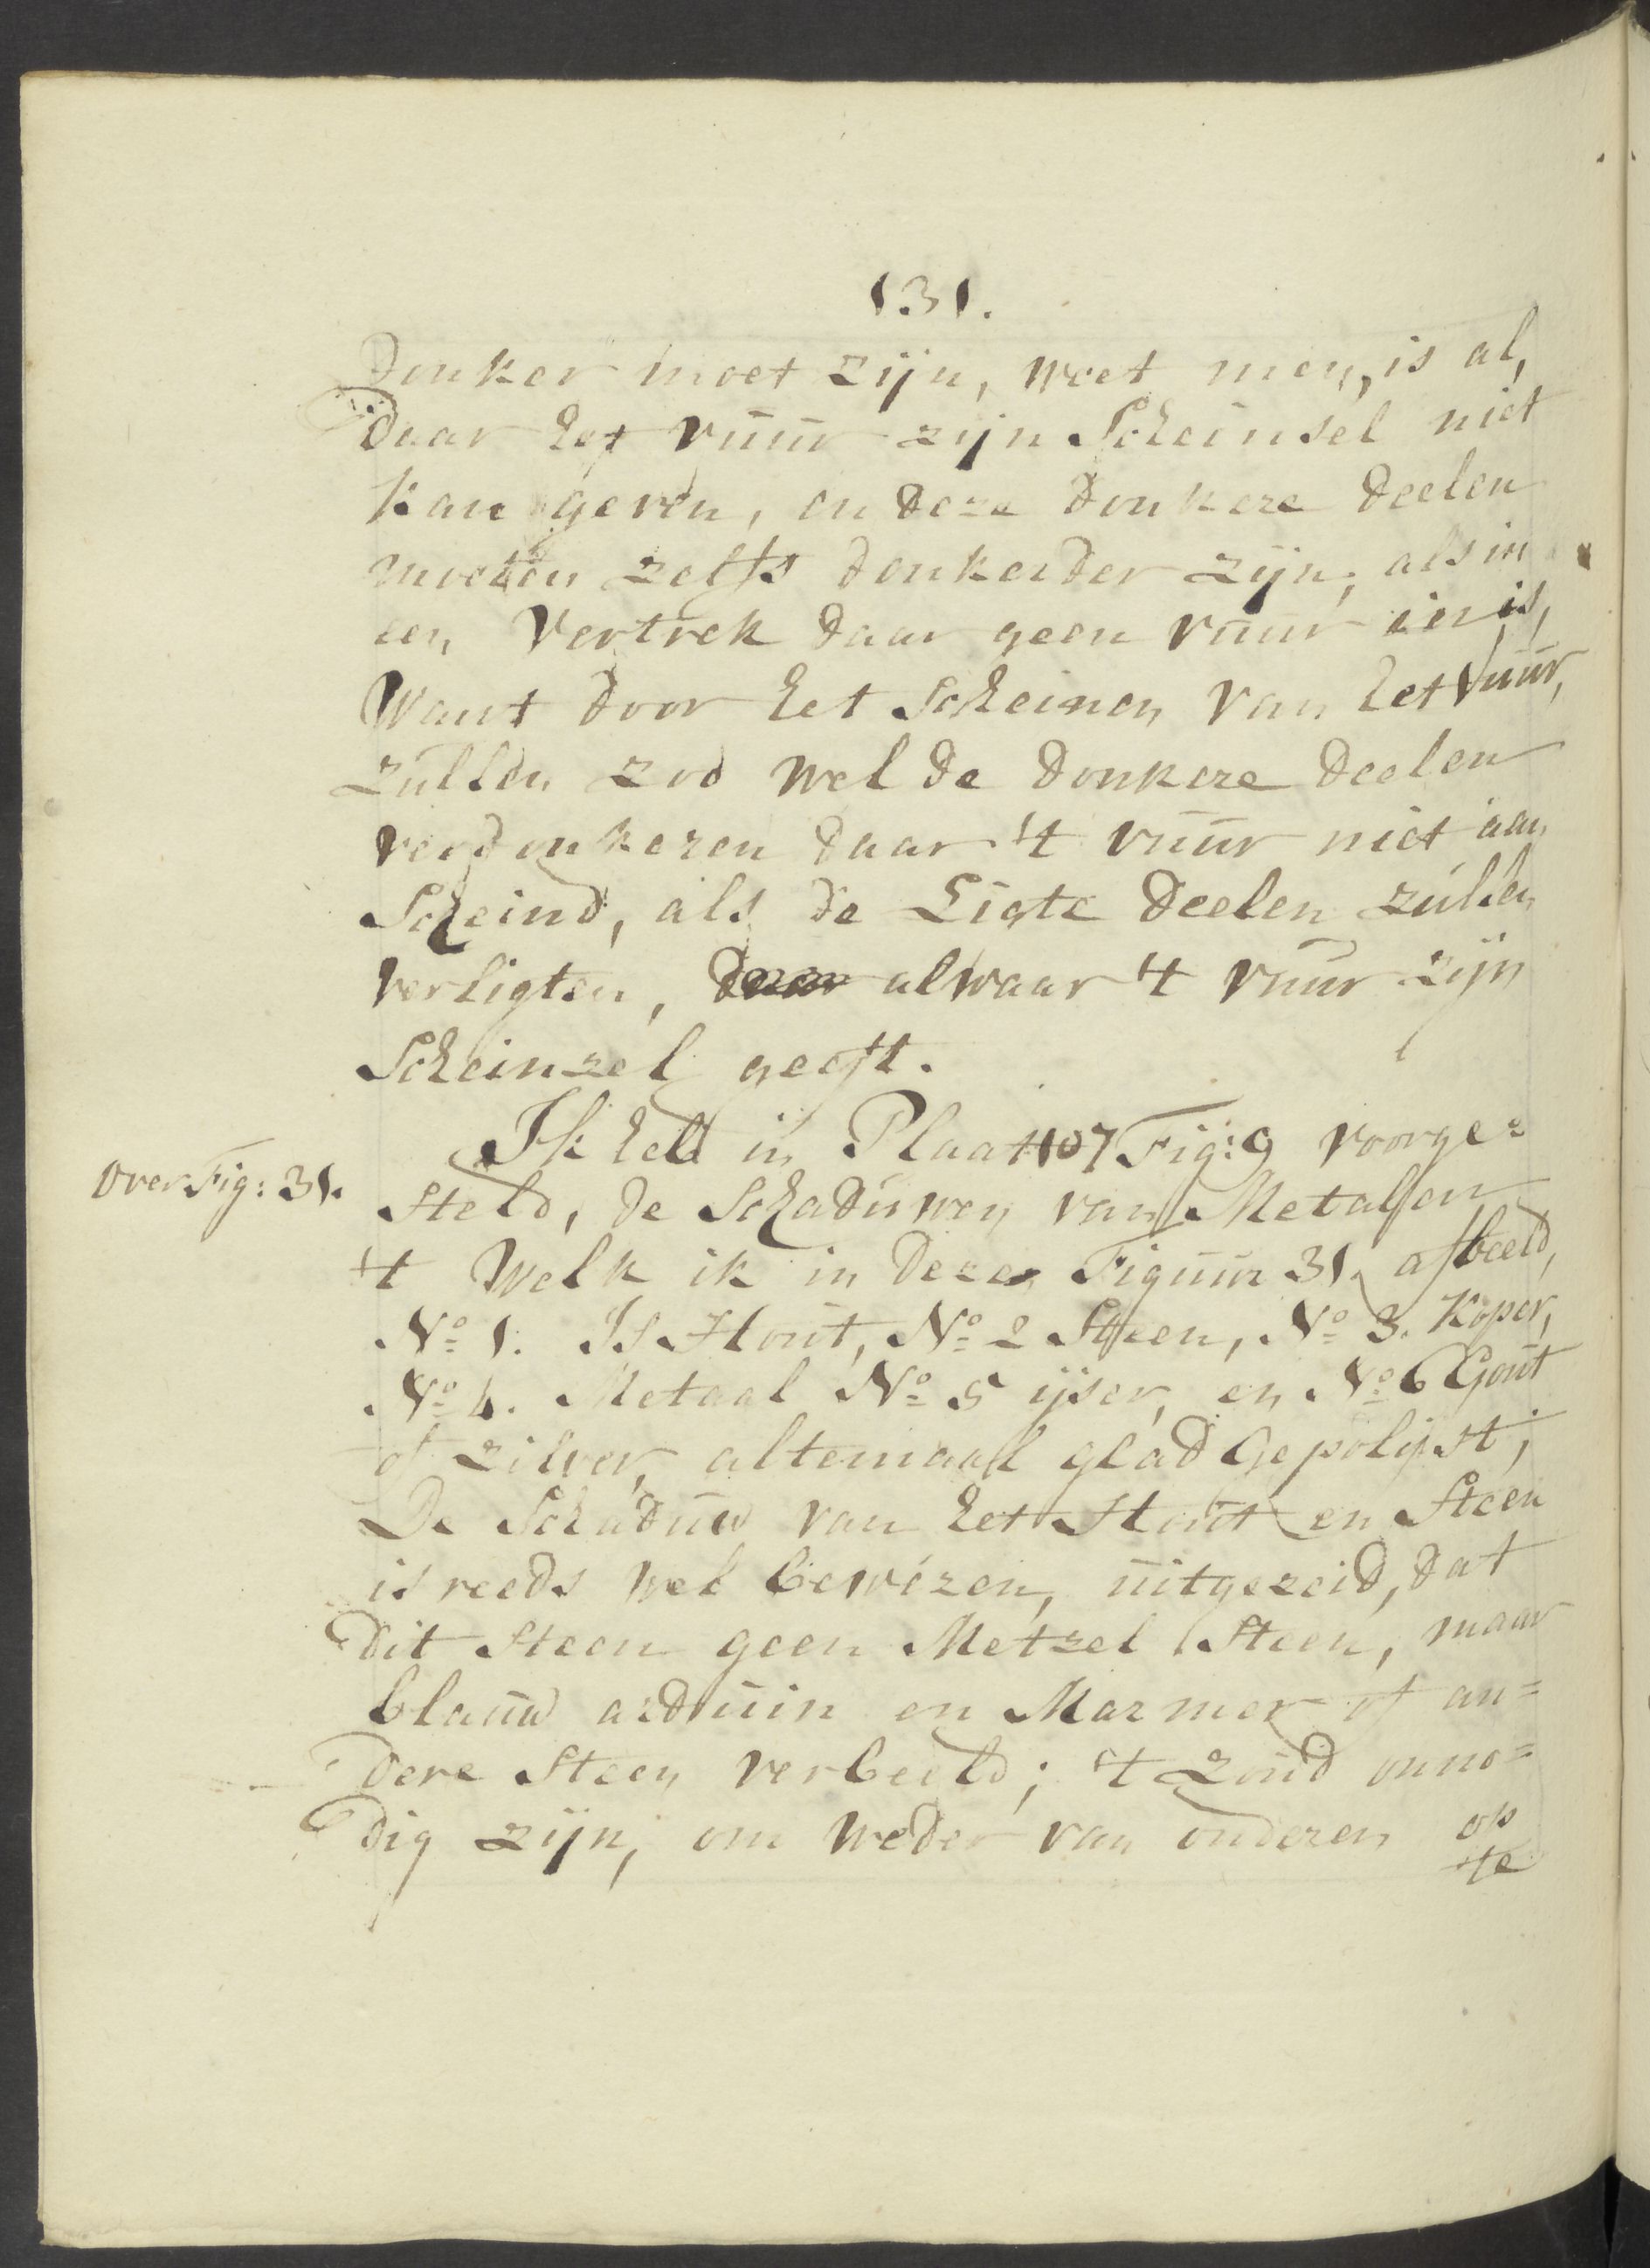 131.
donker moet zijn, weet men, is al,
daar het vuur zijn Scheinsel niet
kan geven, en deze donkere deelen
moeten zelfs donkerder zijn, als in
een Vertrek daar geen vuur in is,
Want door het Scheinen van het Vuur,
zullen zoo wel de donkere deelen
verdonkeren daar 't vuur niet aan
Scheind, als de Ligte deelen zullen
verligten, daar alwaar 't vuur zijn
Scheinzel geeft.
Ik heb in Plaat 107 Fig: 9 voorge=
Over Fig: 31.
steld, de Schaduwen van Metalen
't Welk ik in deze Figuur 31. afbeeld,
No 1. Is Hout, No 2 Steen, No 3. Koper,
No 4. Metaal No 5 ijser, en No 6 Gout
of zilver, altemaal glad Gepolijst;
De Schaduw van het Hout en Steen
is reeds wel bewezen, uitgezeid, dat
dit Steen geen Metzel Steen, maar
blauw arduin en Marmer of an=
dere Steen verbeeld; 't Zoud onno=
dig zijn, om weder van onderen op
te